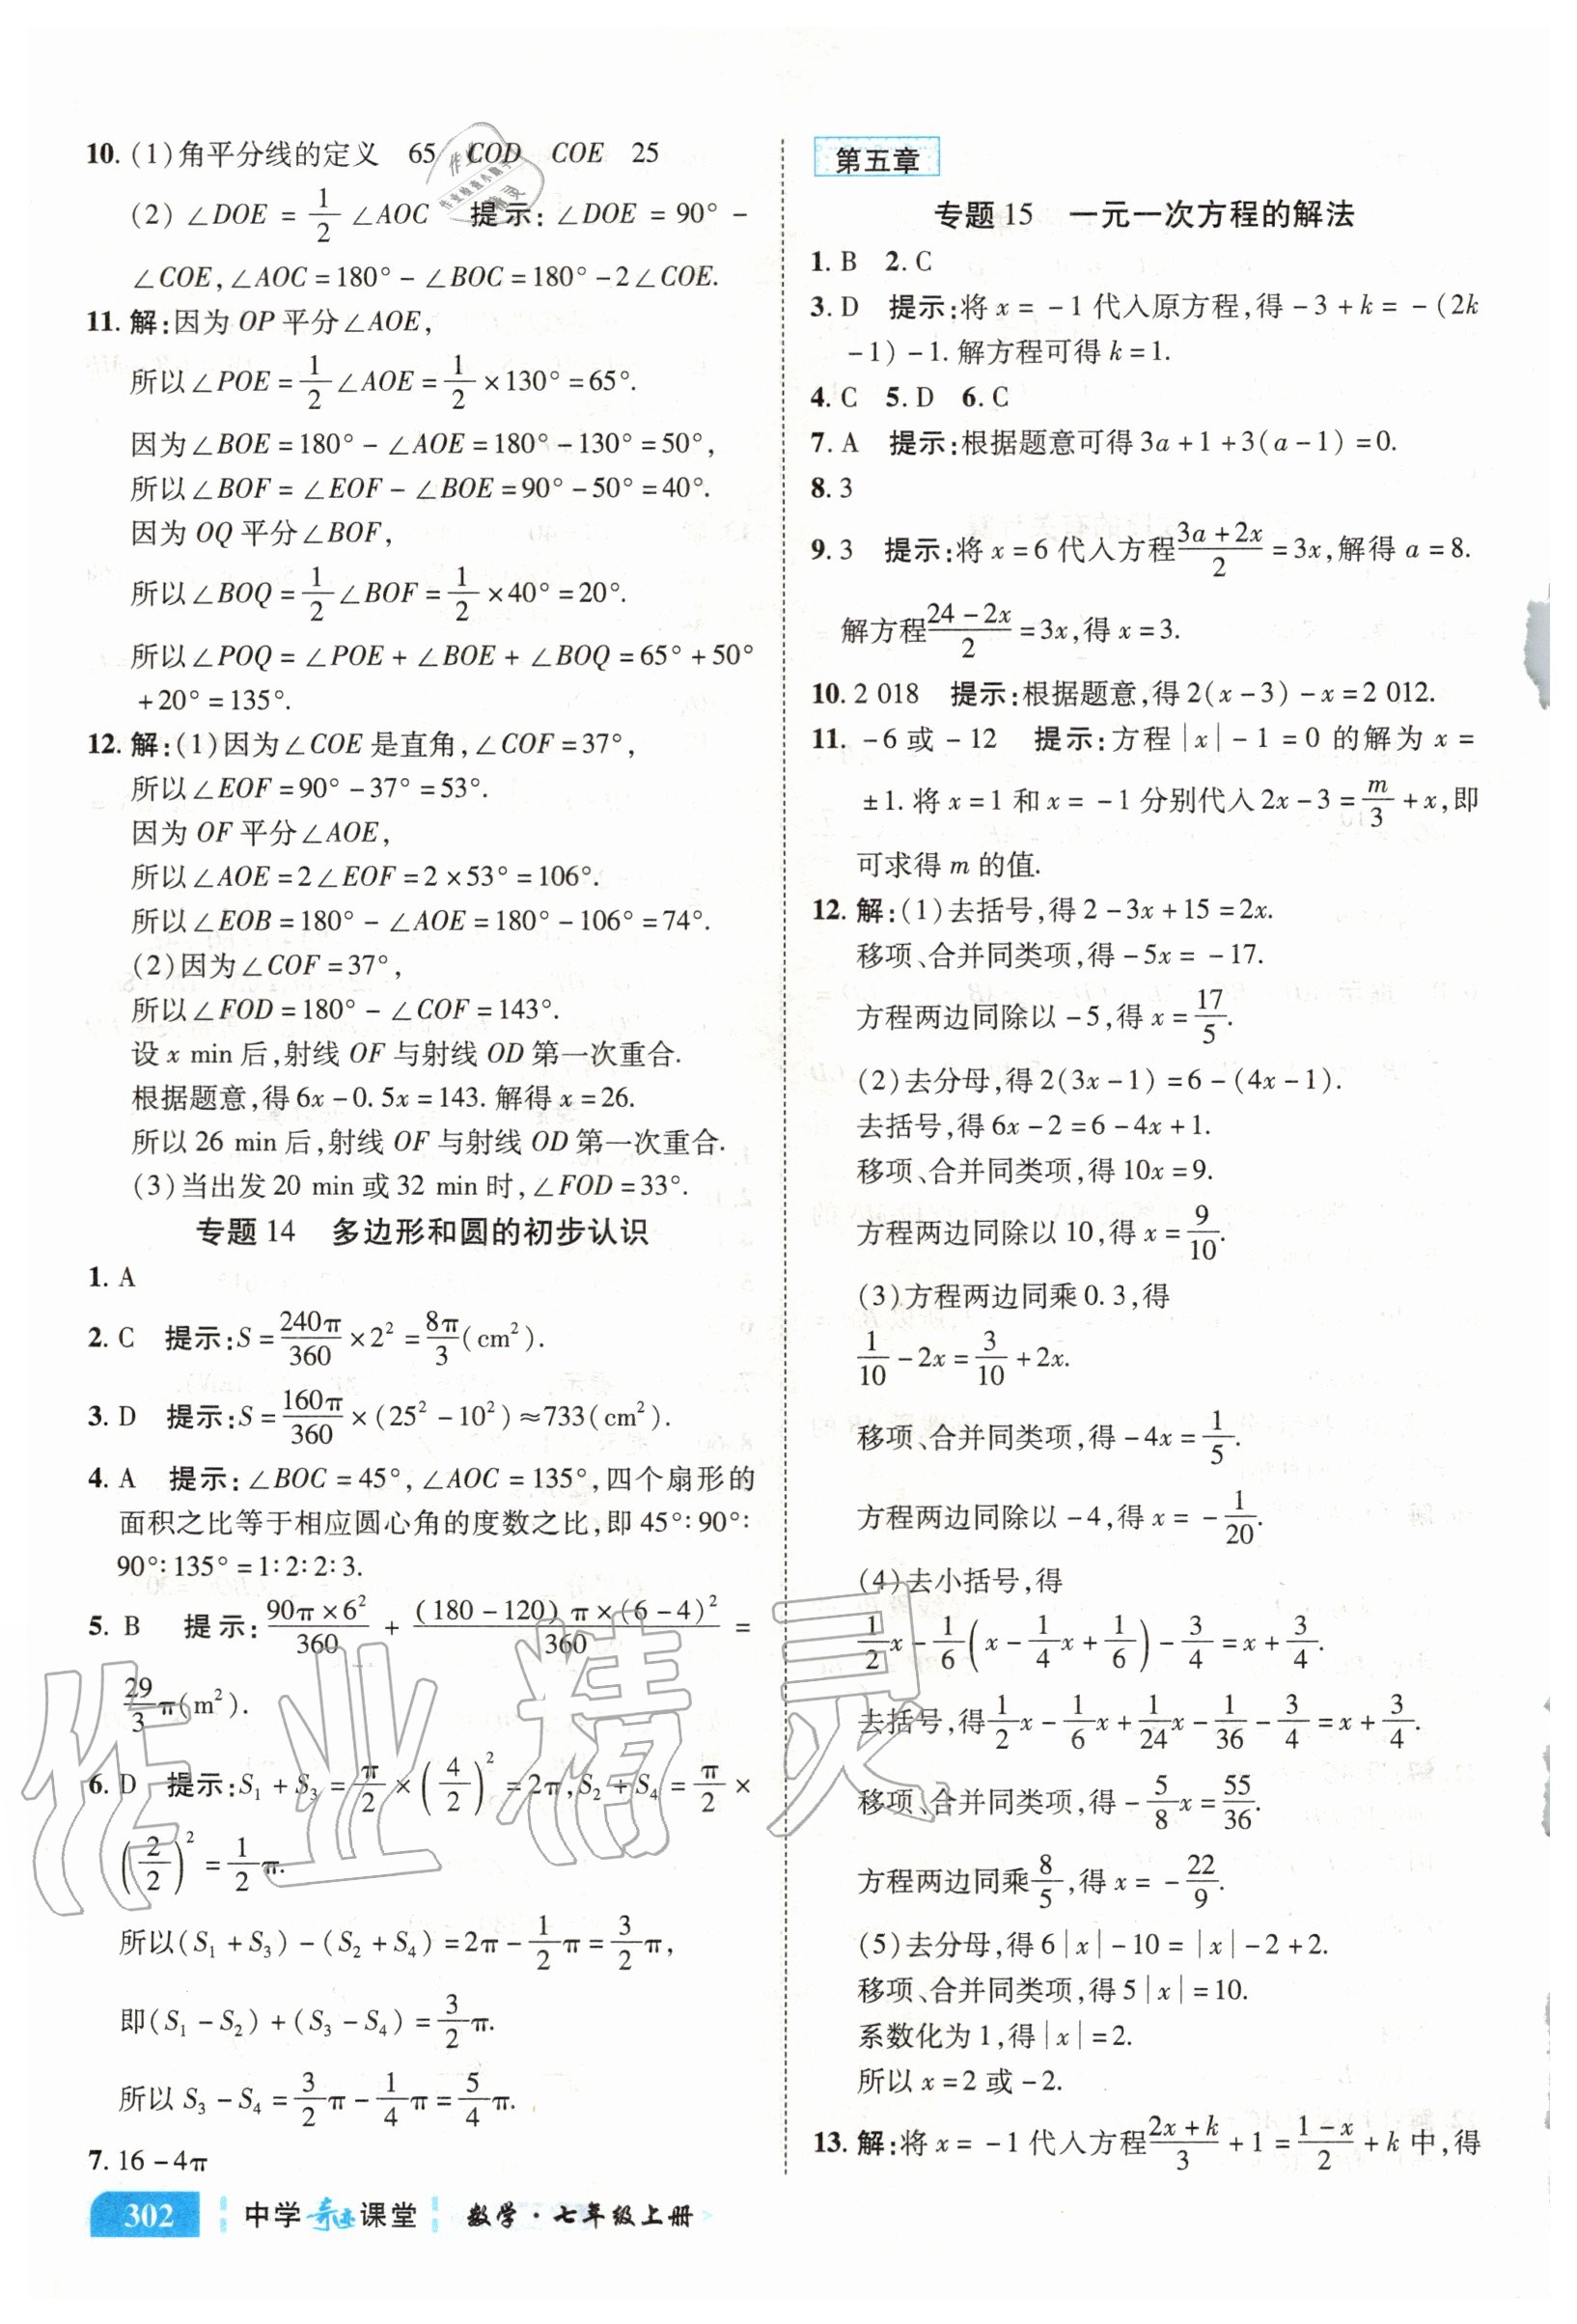 10. (1)角平分线的定义 65 COD COE 25
(2) ∠DOE = 1/2 ∠AOC 提示: ∠DOE = 90° -
∠COE, ∠AOC = 180° - ∠BOC = 180° - 2∠COE.
11. 解:因为 OP 平分∠AOE,
所以∠POE = 1/2 ∠AOE = 1/2 × 130° = 65°.
因为∠BOE = 180° - ∠AOE = 180° - 130° = 50°,
所以∠BOF = ∠EOF - ∠BOE = 90° - 50° = 40°.
因为 OQ 平分∠BOF,
所以∠BOQ = 1/2 ∠BOF = 1/2 × 40° = 20°.
所以∠POQ = ∠POE + ∠BOE + ∠BOQ = 65° + 50°
+ 20° = 135°.
12. 解:(1)因为∠COE 是直角,∠COF = 37°,
所以∠EOF = 90° - 37° = 53°.
因为 OF 平分∠AOE,
所以∠AOE = 2∠EOF = 2 × 53° = 106°.
所以∠EOB = 180° - ∠AOE = 180° - 106° = 74°.
(2)因为∠COF = 37°,
所以∠FOD = 180° - ∠COF = 143°.
设 x min 后,射线 OF 与射线 OD 第一次重合.
根据题意,得 6x - 0.5x = 143. 解得 x = 26.
所以 26 min 后,射线 OF 与射线 OD 第一次重合.
(3)当出发 20 min 或 32 min 时,∠FOD = 33°.
专题 14 多边形和圆的初步认识
1. A
2. C 提示:S = 240π/360 × 2² = 8π/3 (cm²).
3. D 提示:S = 160π/360 × (25² - 10²) ≈ 733(cm²).
4. A 提示: ∠BOC = 45°, ∠AOC = 135°,四个扇形的
面积之比等于相应圆心角的度数之比,即 45°∶90°∶
90°∶135° = 1∶2∶2∶3.
5. B 提示: 90π × 6²/360 + (180 - 120)π × (6 - 4)²/360 =
29/3 π(m²).
6. D 提示:S₁ + S₃ = π/2 × (4/2)² = 2π, S₂ + S₄ = π/2 ×
(2/2)² = 1/2 π.
所以(S₁ + S₃) - (S₂ + S₄) = 2π - 1/2 π = 3/2 π,
即(S₁ - S₂) + (S₃ - S₄) = 3/2 π.
所以 S₃ - S₄ = 3/2 π - 1/4 π = 5/4 π.
7. 16 - 4π
302 中学奇迹课堂 数学·七年级上册
第五章
专题 15 一元一次方程的解法
1. B 2. C
3. D 提示:将 x = -1 代入原方程,得 -3 + k = -(2k
-1) -1. 解方程可得 k = 1.
4. C 5. D 6. C
7. A 提示:根据题意可得 3a + 1 + 3(a - 1) = 0.
8. 3
9. 3 提示:将 x = 6 代入方程 (3a + 2x)/2 = 3x,解得 a = 8.
解方程 (24 - 2x)/2 = 3x,得 x = 3.
10. 2 018 提示:根据题意,得 2(x - 3) - x = 2 012.
11. -6 或 -12 提示:方程 |x| - 1 = 0 的解为 x =
±1. 将 x = 1 和 x = -1 分别代入 2x - 3 = m/3 + x,即
可求得 m 的值.
12. 解:(1)去括号,得 2 - 3x + 15 = 2x.
移项、合并同类项,得 -5x = -17.
方程两边同除以 -5,得 x = 17/5.
(2)去分母,得 2(3x - 1) = 6 - (4x - 1).
去括号,得 6x - 2 = 6 - 4x + 1.
移项、合并同类项,得 10x = 9.
方程两边同除以 10,得 x = 9/10.
(3)方程两边同乘 0.3,得
1/10 - 2x = 3/10 + 2x.
移项、合并同类项,得 -4x = 1/5.
方程两边同除以 -4,得 x = -1/20.
(4)去小括号,得
1/2 x - 1/6 (x - 1/4 x + 1/6) - 3/4 = x + 3/4.
去括号,得 1/2 x - 1/6 x + 1/24 x - 1/36 - 3/4 = x + 3/4.
移项、合并同类项,得 -5/8 x = 55/36.
方程两边同乘 8/5,得 x = -22/9.
(5)去分母,得 6|x| - 10 = |x| - 2 + 2.
移项、合并同类项,得 5|x| = 10.
系数化为 1,得 |x| = 2.
所以 x = 2 或 -2.
13. 解:将 x = -1 代入方程 (2x + k)/3 + 1 = (1 - x)/2 + k 中,得
作业精灵